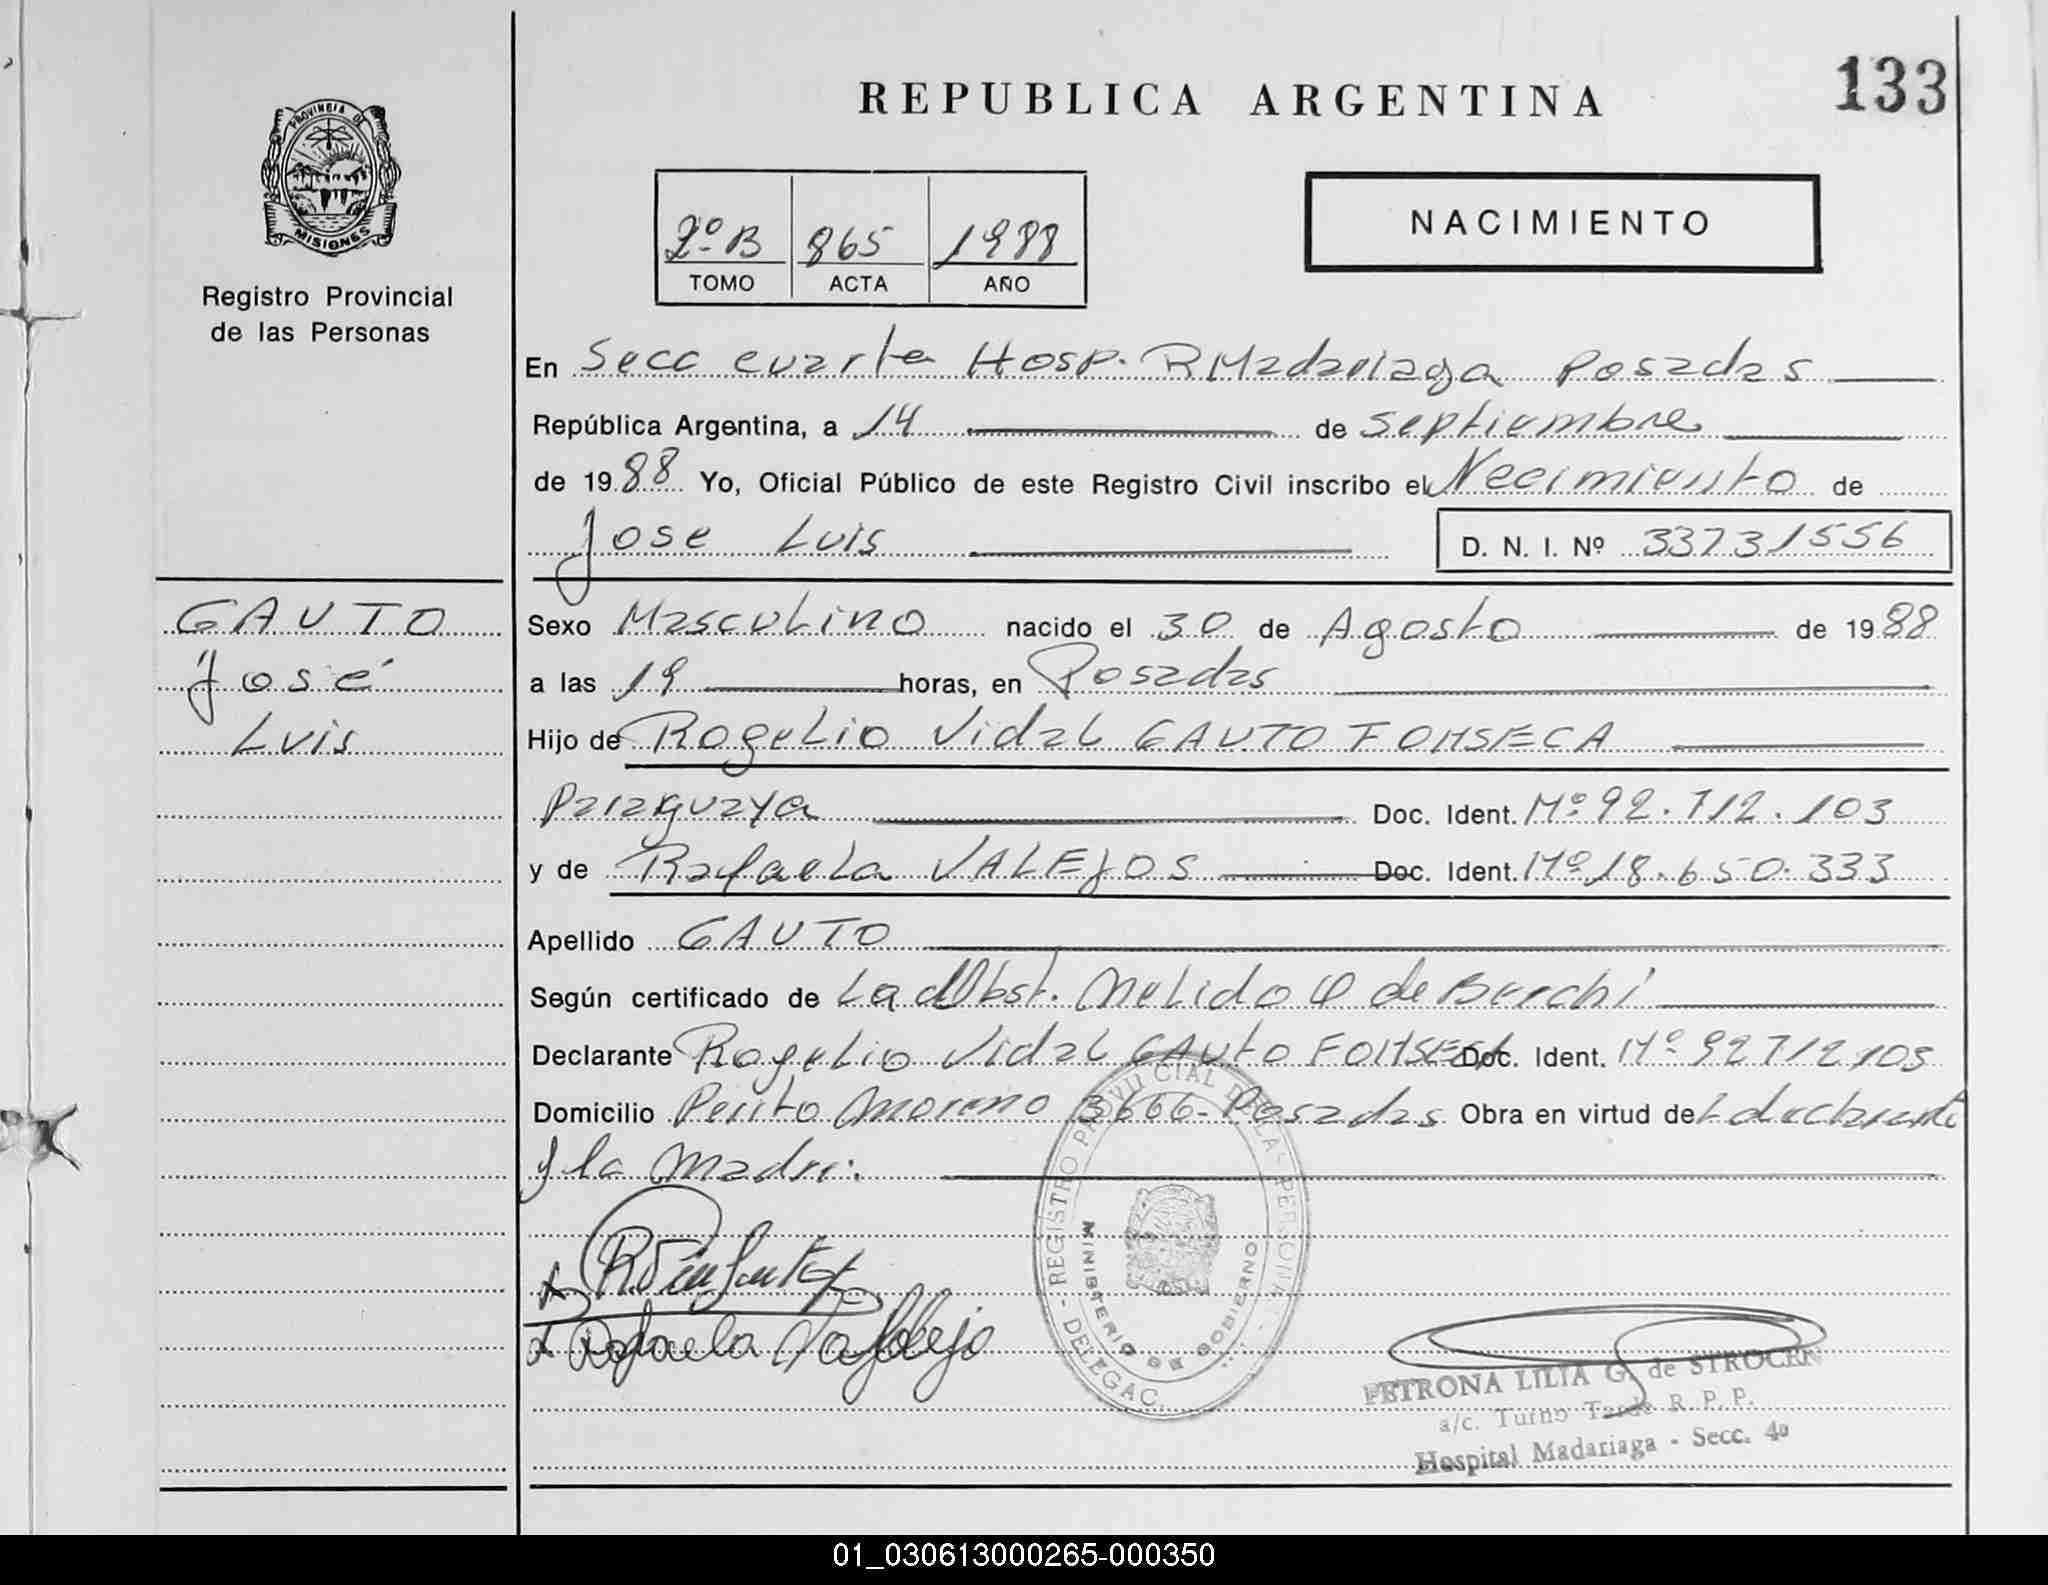 REPUBLICA ARGENTINA
133
PROVINCIA DE
MISIONES
Registro Provincial
de las Personas
2º B 865 1988
TOMO ACTA AÑO
NACIMIENTO
En Secc cuarta Hosp. R Madariaga Posadas
República Argentina, a 14 de septiembre
de 1988 Yo, Oficial Público de este Registro Civil inscribo el Nacimiento de
Jose Luis D. N. I. Nº 33731556
GAUTO
José
Luis
Sexo Masculino nacido el 30 de Agosto de 1988
a las 19 horas, en Posadas
Hijo de Rogelio Vidal GAUTO FONSECA
Paraguaya Doc. Ident. Nº 92.712.103
y de Rafaela VALEJOS Doc. Ident. Nº 18.650.333
Apellido GAUTO
Según certificado de La Obst. Melida de
Declarante Rogelio Vidal GAUTO FONSECA Doc. Ident. Nº 92712103
Domicilio Perito Moreno 3666 - Posadas Obra en virtud del declarante
y la Madre:
REGISTRO PROVINCIAL DE LAS PERSONAS - DELEGAC.
MINISTERIO DE GOBIERNO
Rafaela Vallejo
PETRONA LILIA G. de STROCEN
a/c. Turno Tarde R. P. P.
Hospital Madariaga - Secc. 4a
01_030613000265-000350